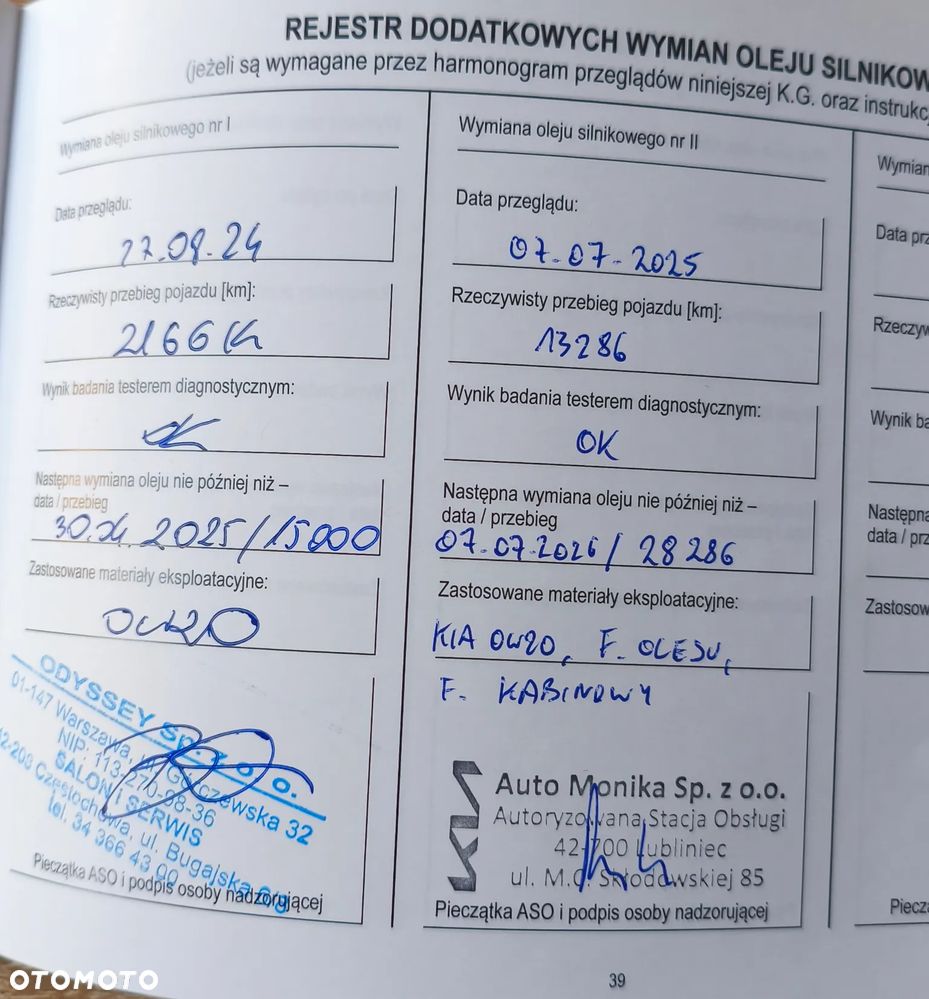 REJESTR DODATKOWYCH WYMIAN OLEJU SILNIKOW
(jeżeli są wymagane przez harmonogram przeglądów niniejszej K.G. oraz instrukc
Wymiana oleju silnikowego nr I
Data przeglądu:
27.08.24
Rzeczywisty przebieg pojazdu [km]:
2166
Wynik badania testerem diagnostycznym:
OK
Następna wymiana oleju nie później niż –
data / przebieg
2025/15000
Zastosowane materiały eksploatacyjne:
0W20
ODYSSEY Sp. z o. o.
01-147 Warszawa, ul. Górczewska 32
NIP: 113-270-98-36
SALON i SERWIS
42-200 Częstochowa, ul. Bugajska
tel. 34 366 43 00
Pieczątka ASO i podpis osoby nadzorującej
Wymiana oleju silnikowego nr II
Data przeglądu:
07-07-2025
Rzeczywisty przebieg pojazdu [km]:
13286
Wynik badania testerem diagnostycznym:
OK
Następna wymiana oleju nie później niż –
data / przebieg
07.07.2026/ 28286
Zastosowane materiały eksploatacyjne:
KIA 0W20, F. OLEJU,
F. KABINOWY
KIA
Auto Monika Sp. z o.o.
Autoryzowana Stacja Obsługi
42-700 Lubliniec
ul. M.C. Skłodowskiej 85
Pieczątka ASO i podpis osoby nadzorującej
Wymian
Data prz
Rzeczyw
Wynik ba
Następna
data / prz
Zastosow
Piecz
39
OTOMOTO